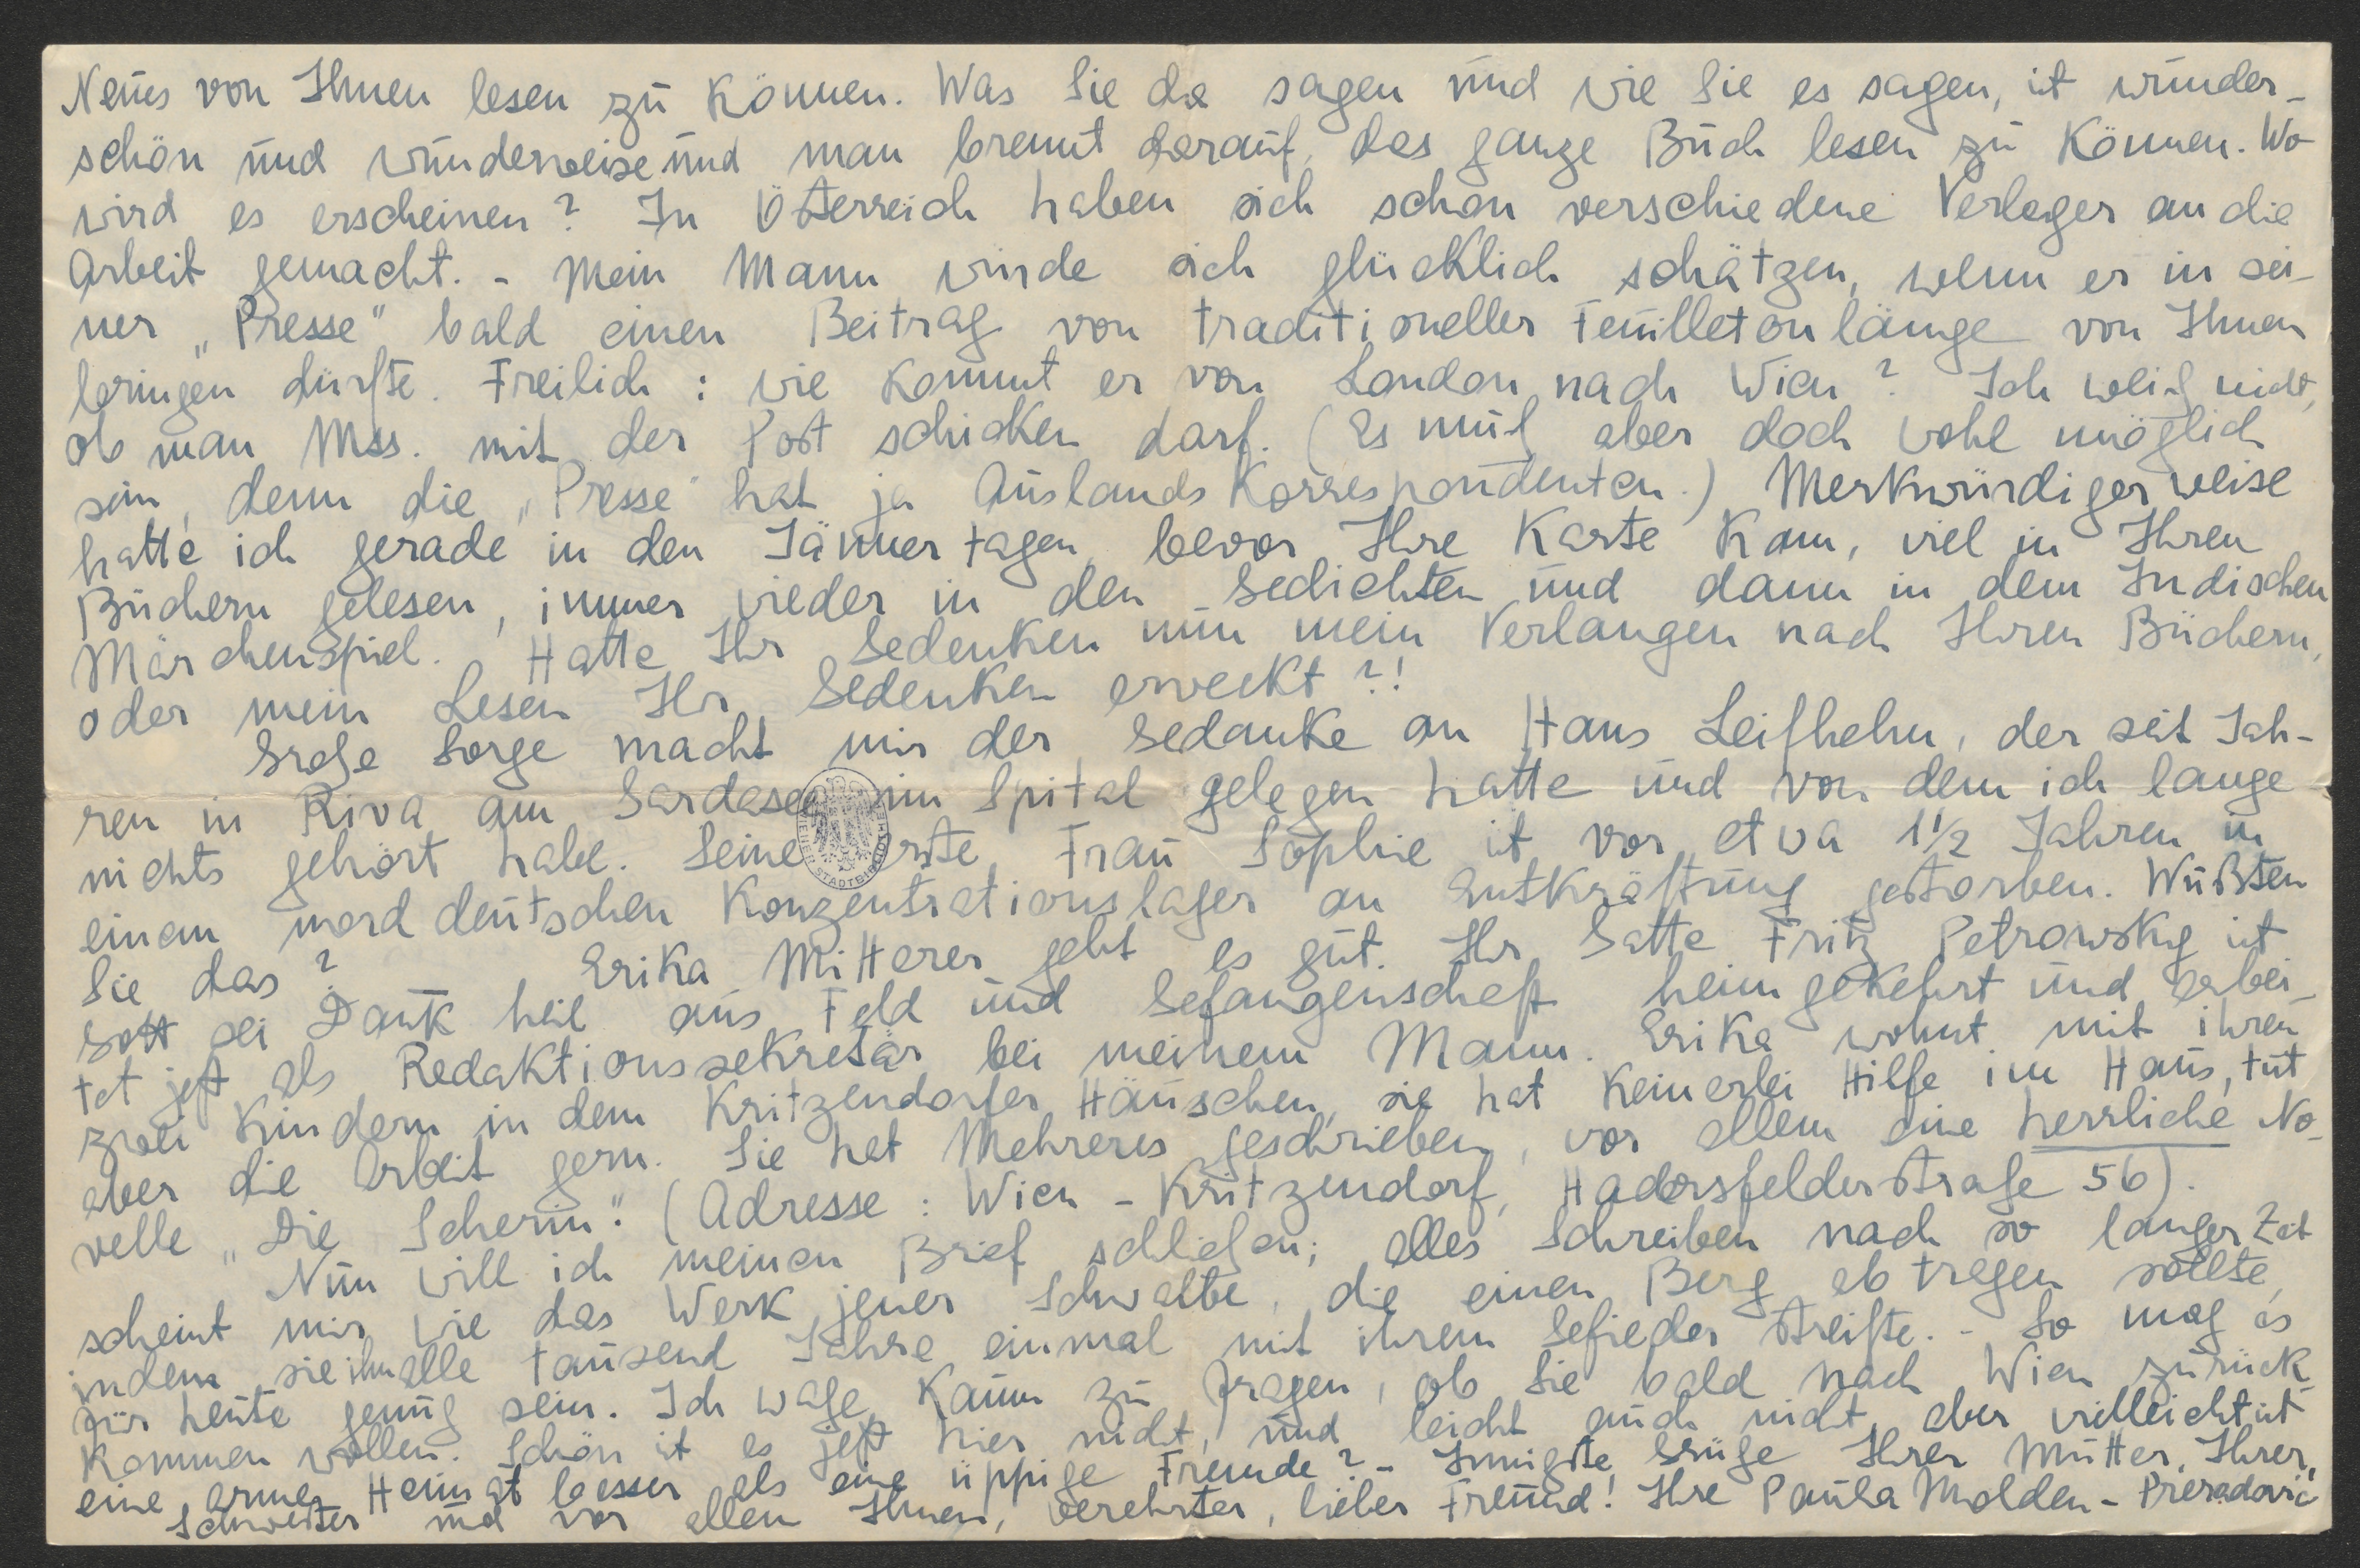 Neues von Ihnen lesen zu können. Was Sie da sagen und wie Sie es sagen, ist wunder-
schön und wunderweise und man brennt darauf, das ganze Buch lesen zu können. Wo
wird es erscheinen? In Österreich haben sich schon verschiedene Verleger an die
Arbeit gemacht. - Mein Mann würde sich glücklich schätzen, wenn er in sei-
ner „Presse" bald einen Beitrag von traditioneller Feuilletonlänge von Ihnen
bringen dürfte. Freilich: wie kommt er von London nach Wien? Ich weiß nicht,
ob man Mss. mit der Post schicken darf. (Es muß aber doch wohl möglich
sein, denn die „Presse" hat ja Auslandskorrespondenten.) Merkwürdigerweise
hatte ich gerade in den Jännertagen, bevor Ihre Karte kam, viel in Ihren
Büchern gelesen, immer wieder in den Gedichten und dann in dem Indischen
Märchenspiel. Hatte Ihr Gedenken nun mein Verlangen nach Ihren Büchern,
oder mein Lesen Ihr Gedenken erweckt?!
Große Sorge macht mir der Gedanke an Hans Leifhelm, der seit Jah-
ren in Riva am Gardasee im Spital gelegen hatte und von dem ich lange
nichts gehört habe. Seine erste Frau Sophie ist vor etwa 1 1/2 Jahren in
einem norddeutschen Konzentrationslager an Entkräftung gestorben. Wußten
Sie das? Erika Mitterer geht es gut. Ihr Gatte Fritz Petrowsky ist
Gott sei Dank heil aus Feld und Gefangenschaft heimgekehrt und arbei-
tet jetzt als Redaktionssekretär bei meinem Mann. Erika wohnt mit ihren
zwei Kindern in dem Kritzendorfer Häuschen, sie hat keinerlei Hilfe im Haus, tut
aber die Arbeit gern. Sie hat Mehreres geschrieben, vor allem eine herrliche No-
velle „Die Seherin". (Adresse: Wien - Kritzendorf, Hadersfelderstraße 56).
Nun will ich meinen Brief schließen; alles Schreiben nach so langer Zeit
scheint mir wie das Werk jener Schwalbe, die einen Berg abtragen sollte,
indem sie ihn alle tausend Jahre einmal mit ihrem Gefieder streifte. - So mag es
für heute genug sein. Ich wage kaum zu fragen, ob Sie bald nach Wien zurück-
kommen wollen. Schön ist es jetzt hier nicht, und leicht auch nicht, aber vielleicht ist
eine arme Heimat besser als eine üppige Fremde? - Innigste Grüße Ihrer Mutter, Ihrer
Schwester und vor allem Ihnen, verehrter, lieber Freund! Ihre Paula Molden-Preradović